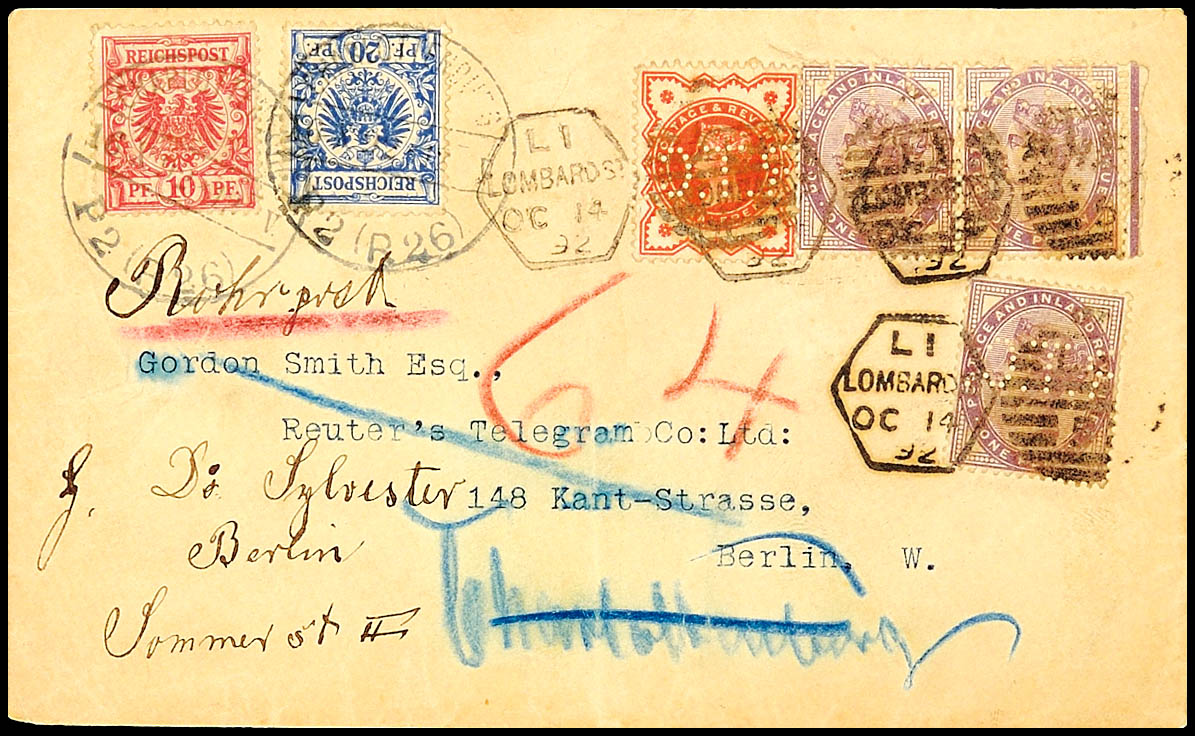 REICHSPOST
PF. 10 PF.
PF. 20 PF.
REICHSPOST
P2 (P.26)
P2 (P.26)
LI
LOMBARD ST
OC 14
92
POSTAGE & REVENUE
POSTAGE AND INLAND REVENUE
ONE PENNY
POSTAGE AND INLAND REVENUE
ONE PENNY
OC 14
92
Rohrpost
64
LI
LOMBARD
OC 14
92
POSTAGE AND INLAND REV
ONE
Gordon Smith Esq.,
Reuter's Telegram Co: Ltd:
148 Kant-Strasse,
Berlin, W.
Dr Sylvester
Berlin
Sommer st II
Charlottenburg